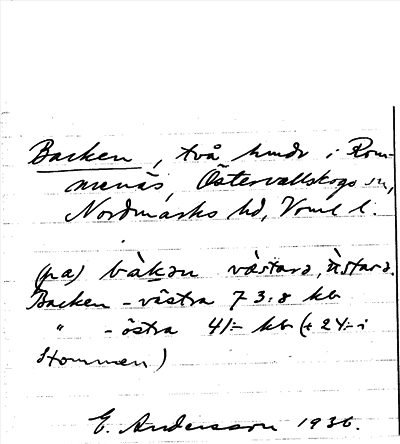 Backen, två hmdr i Rom-
menäs, Östervallskogs sn,
Nordmarks hd, Vrml l.
(på) bàkən västara, ùstara.
Backen - västra 73:8 kb
" - östra 41:- kb (+ 24:- i
Hommen)
E. Andersson 1936.